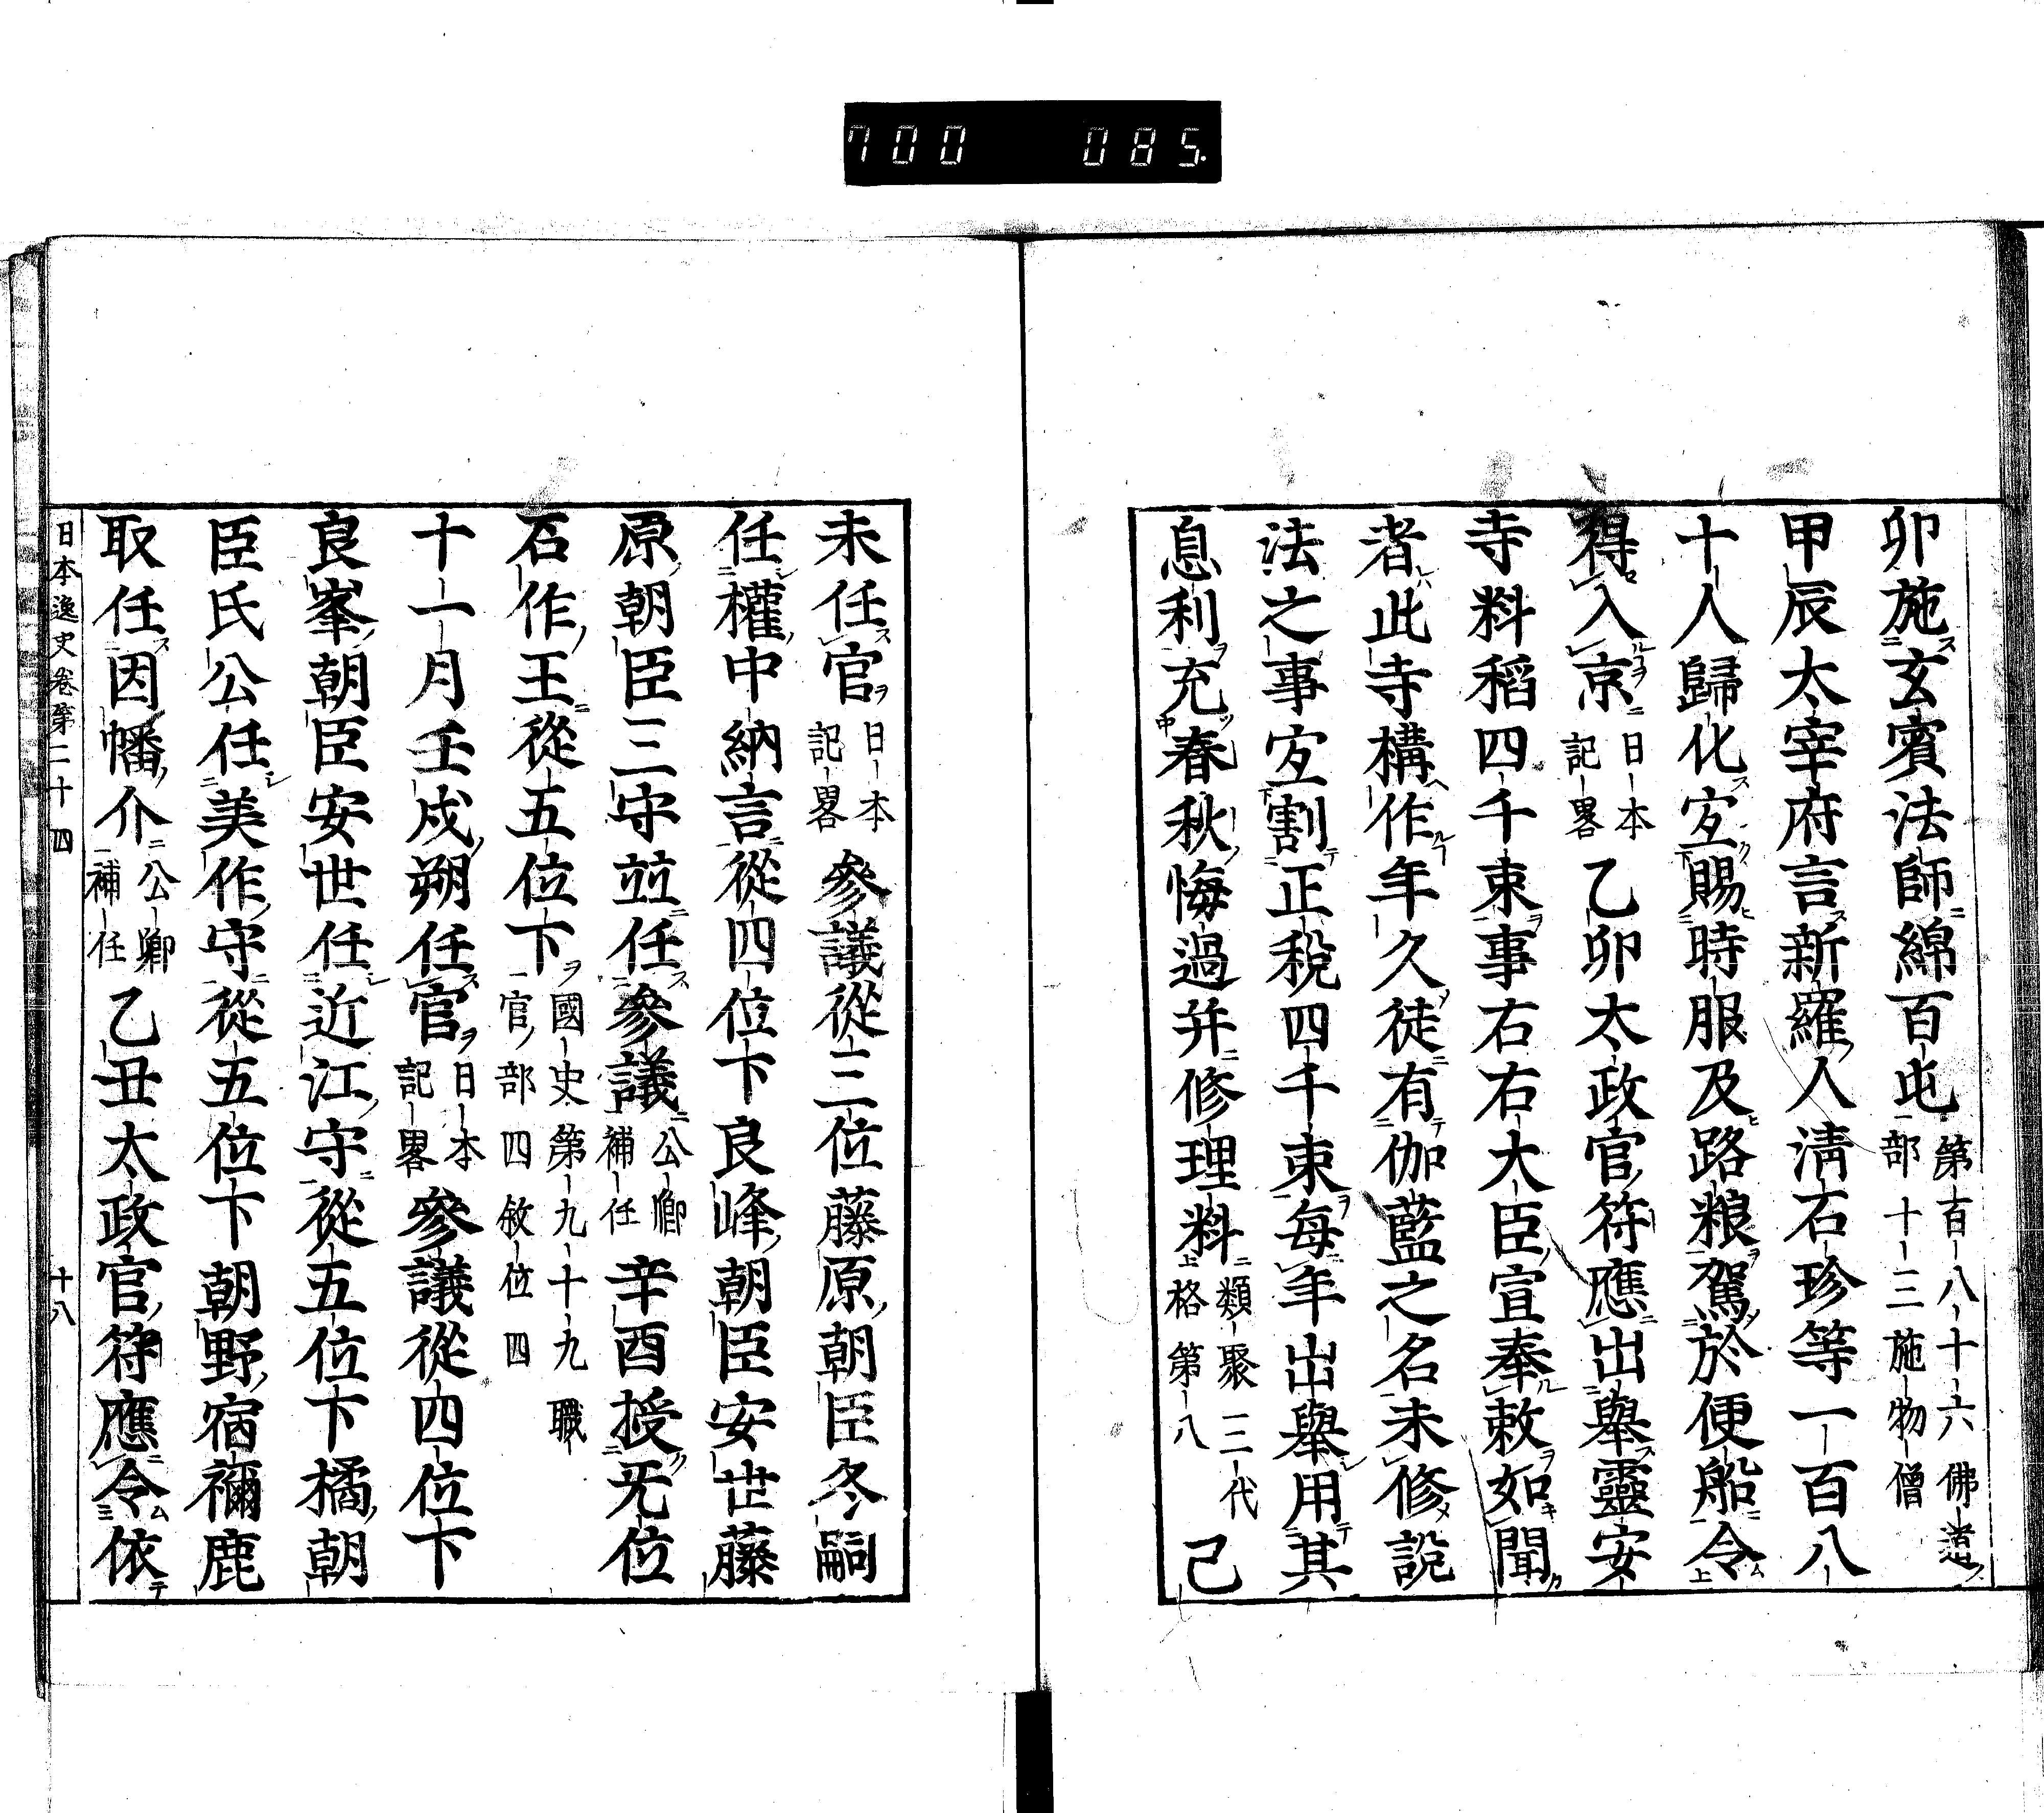 700 085.
卯施玄賓法師綿百屯第百八十六佛道部十三施物僧
甲辰太宰府言新羅人淸石珍等一百八
十人歸化宜賜時服及路粮駕於便船令
得入京日本記畧乙卯太政官符應出舉靈安
寺料稻四千束事右右大臣宣奉敕如聞
者此寺構作年久徒有伽藍之名未修說
法之事宜割正稅四千束每年出舉用其
息利充春秋悔過并修理料類聚三代格第八己
未任官日本記畧參議從三位藤原朝臣冬嗣
任權中納言從四位下良峰朝臣安世藤
原朝臣三守並任參議公卿補任辛酉授无位
石作王從五位下國史第九十九職官部四敘位四
十一月壬戌朔任官日本記畧參議從四位下
良峯朝臣安世任近江守從五位下橘朝
臣氏公任美作守從五位下朝野宿禰鹿
取任因幡介公卿補任乙丑太政官符應令依
日本逸史卷第二十四 十八